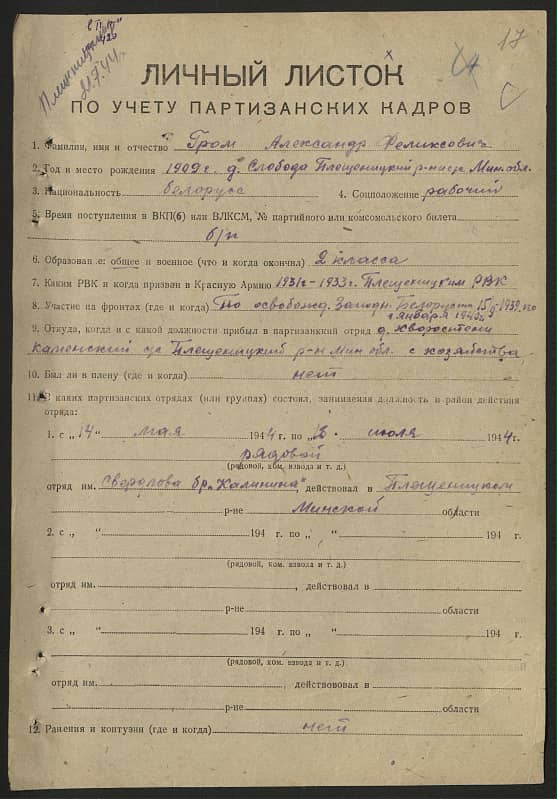 17
ЛИЧНЫЙ ЛИСТОК
ПО УЧЕТУ ПАРТИЗАНСКИХ КАДРОВ
1. Фамилия, имя и отчество Гром Александр Феликсович
2. Год и место рождения 1909 г. д. Слобода Плещеницкий р-на Мин. обл.
3. Национальность белорусс 4. Соцположение рабочий
5. Время поступления в ВКП(б) или ВЛКСМ, № партийного или комсомольского билета
б/п
6. Образование: общее и военное (что и когда окончил) 2 класса
7. Каким РВК и когда призван в Красную Армию 1931г-1933г. Плещеницким РВК
8. Участие на фронтах (где и когда) По освобожд. Западн. Белоруссии 1939
января
9. Откуда, когда и с какой должности прибыл в партизанкий отряд д.
Каменский с/с Плещеницкий р-н Мин обл. с хозяйства
10. Был ли в плену (где и когда) нет
11. В каких партизанских отрядах (или группах) состоял, занимаемая должность и район действия
отряда:
1. с „14" мая 1944 г. по „ июля 1944 г.
рядовой
(рядовой, ком. взвода и т. д.)
отряд им. Свердлова бр. „Калинина" действовал в Плещеницком
р-не Минской области
2. с „ " 194 г. по „ " 194 г.
(рядовой, ком. взвода и т. д.)
отряд им. , действовал в
р-не области
3. с „ " 194 г. по „ " 194 г.
(рядовой, ком. взвода и т. д.)
отряд им. , действововал в
р-не области
12. Ранения и контузия (где и когда) нет